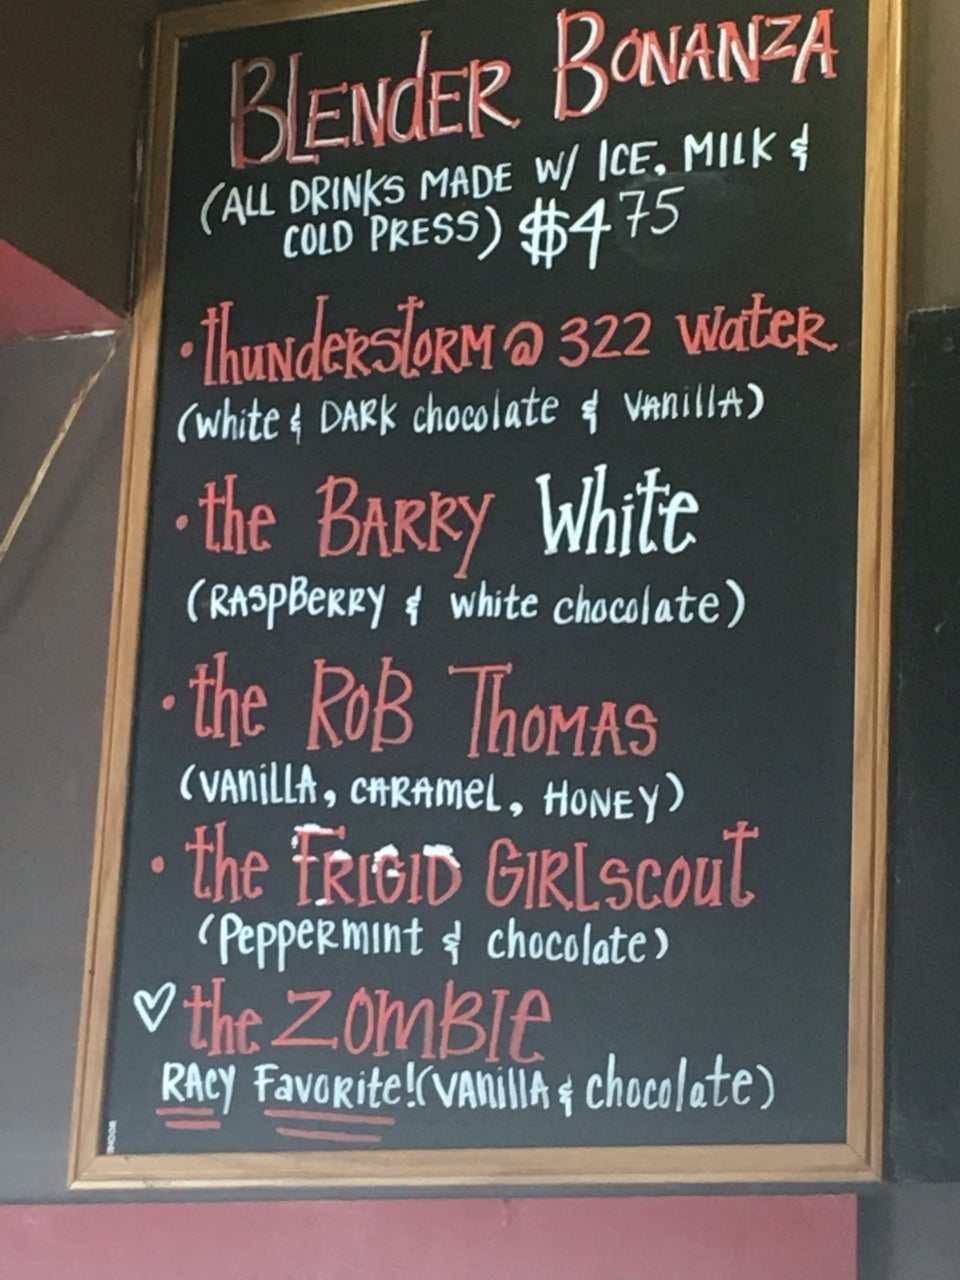 BLENdER BONANZA
(ALL DRINKS MADE W/ ICE, MILK &
COLD PRESS) $4 75
• thUNdeRStORM @ 322 WateR
(White & DARK chocolate & VANillA)
• the BARRY White
(RASPBeRRY & white chocolate)
• the RoB ThoMAS
(VANillA, CARAMeL, HONEY)
• the FRIGID GIRLscout
(PePPeRMint & chocolate)
♡ the ZOMBIe
RACY FavoRite! (VANillA & chocolate)